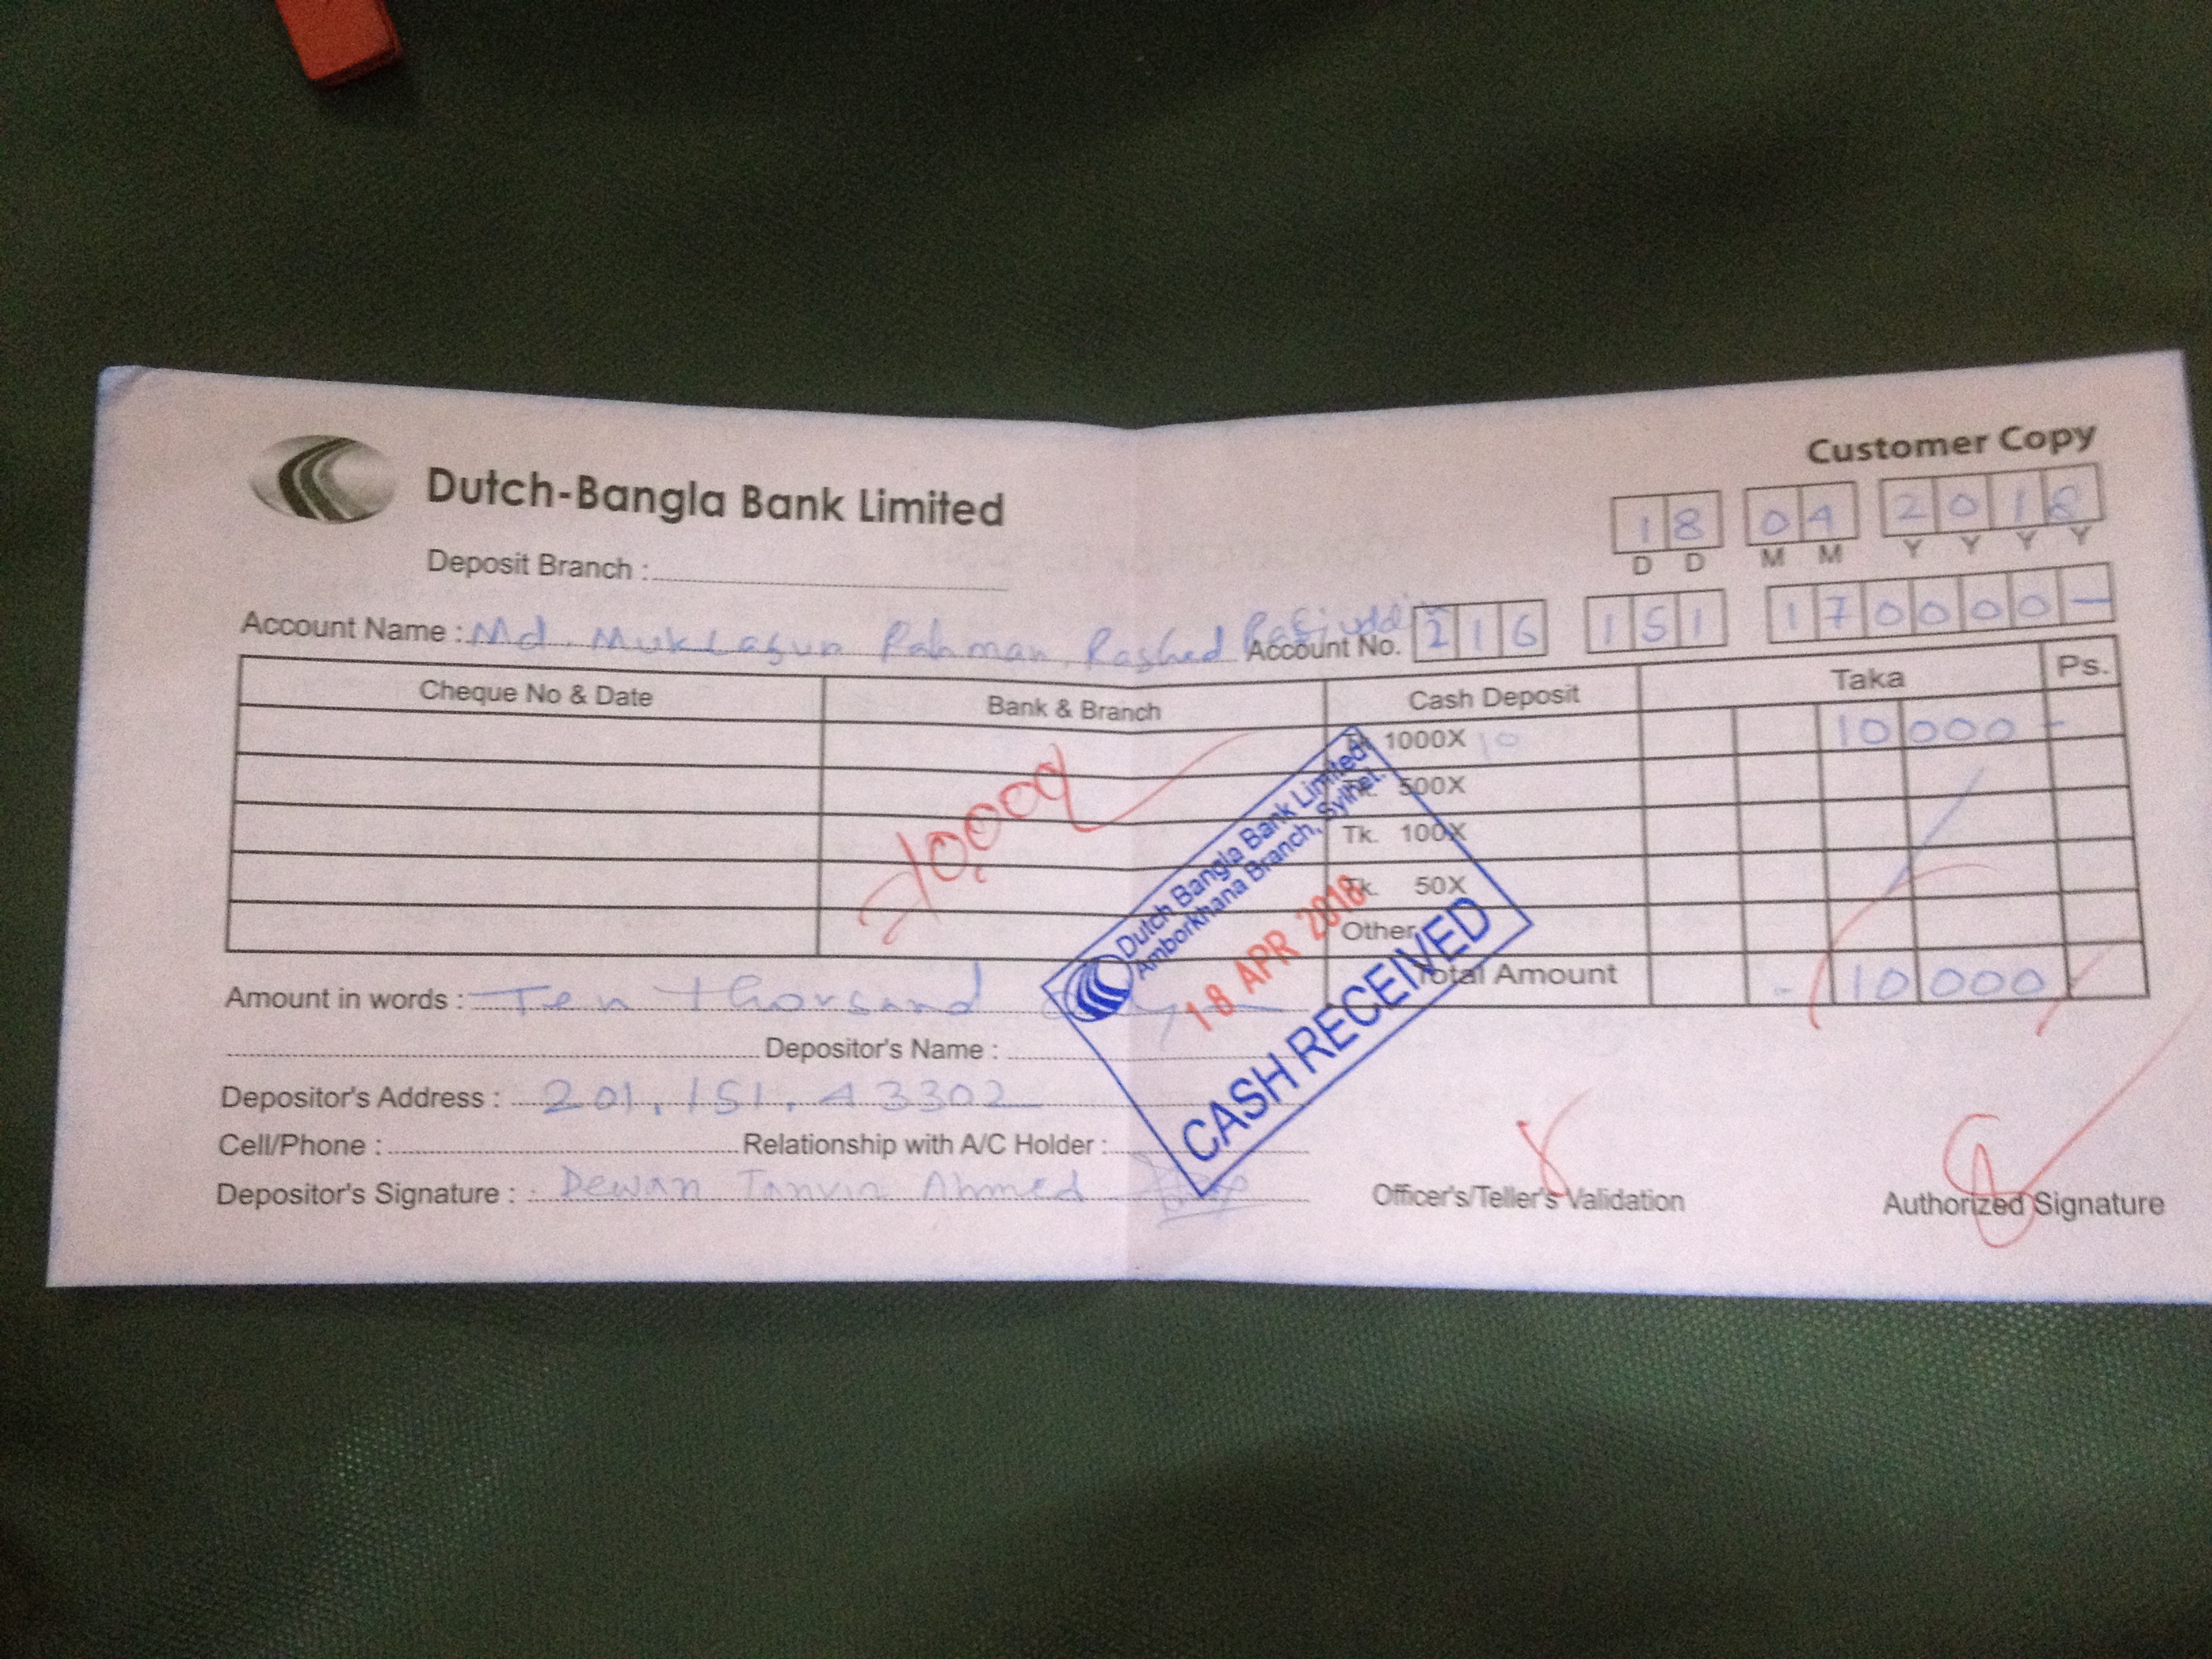 Customer Copy
Dutch-Bangla Bank Limited
18 04 2018
D D M M Y Y Y Y
Deposit Branch :
Account Name : Md. Muklasur Rahman, Rashed Rafiuddin Account No. 216 151 170000-
Cheque No & Date Bank & Branch Cash Deposit Taka Ps.
Tk. 1000X 10 10 000 -
Tk. 500X
Tk. 100X
Tk. 50X
Other
Total Amount 10 000
=10,000
Dutch Bangla Bank Limited
Amborkhana Branch, Sylhet.
18 APR 2018
CASH RECEIVED
Amount in words : Ten thousand only
Depositor's Name :
Depositor's Address : 201.151.43302
Cell/Phone : Relationship with A/C Holder :
Depositor's Signature : Dewan Tanvir Ahmed
Officer's/Teller's Validation Authorized Signature